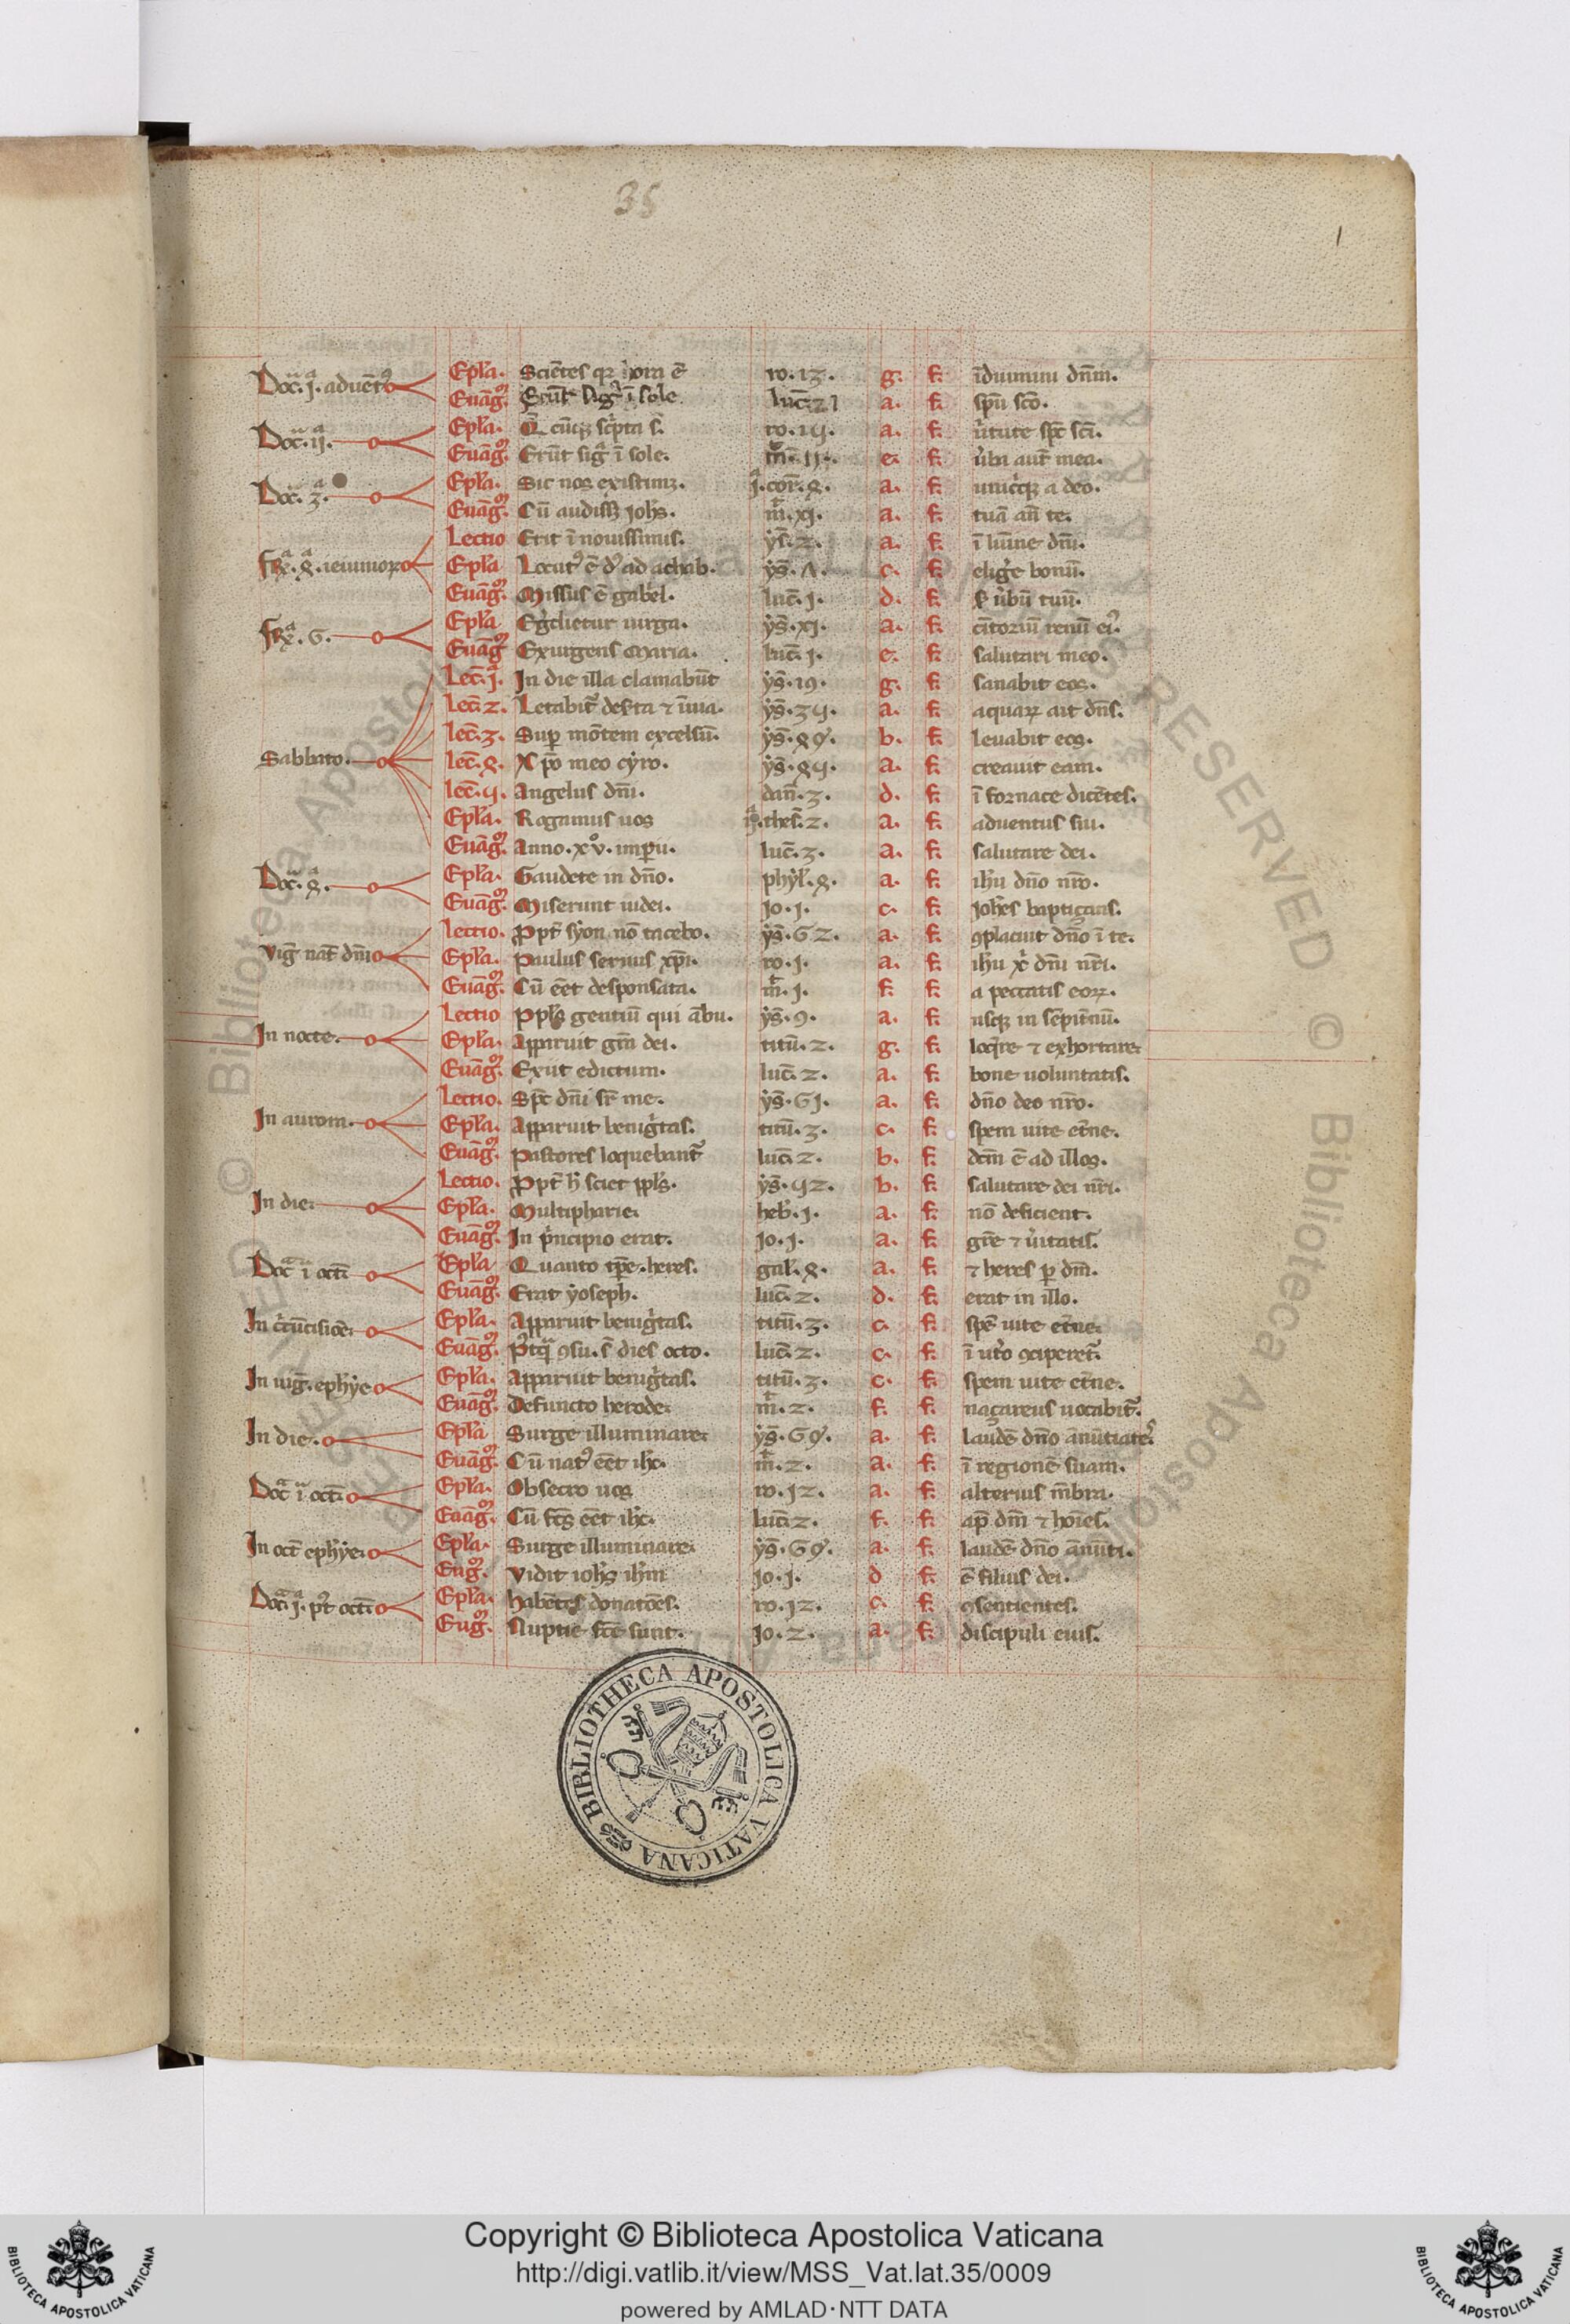 35
1
Doca. j. aduēt9 Epl'a. Scientes qr hora ē ro. 13. g. f. īduimini dnm.
Euāgm. Erūt sig i sole luc. 21 a. f. spū scō.
Doca. ij. Epl'a. Q cūqz scpta s. ro. 15. a. f. ütute spc sci.
Euāgm. Erūt sig ī sole. e. f. uba aut mea.
Doca. 3. Epl'a. Sic nos existimz. j. cor. 4. a. f. unicqz a deo.
Euāgm. Cū audissz Johs. m. xj. a. f. tuā an te.
Lectio Erit ī nouissimis. ys. 2. a. f. ī lumine dni.
4. ieiunioꝝ Epl'a Locut9 ē d ad achab. ys. 7. c. f. elige bonū.
Euāgm. Missus ē gabel. luc. j. d. f. ubū tuū.
6. Epl'a Egdietur uirga. ys. xj. a. f. cītoriū renū ei9.
Euāgm Exurgens Maria. luc. j. e. f. salutari meo.
Lec. j. In die illa clamabūt ys. 19. g. f. sanabit eos.
lec. 2. Letabit deserta ⁊ īuia. ys. 35. a. f. aquaꝝ ait dns.
lec. 3. Sup mōtem excelsū. ys. 40. b. f. leuabit eos.
Sabbato. lec. 4. X po meo cyro. ys. 45. a. f. creauit eam.
lec. 5. Angelus dni. dan. 3. d. f. ī fornace dicētes.
Epl'a. Rogamus uos ij. thes. 2. a. f. aduentus sui.
Euāgm. Anno. xv. impii. luc. 3. a. f. salutare dei.
Doca. 4. Epl'a. Gaudete in dno. phyl. 4. a. f. ihu dno nro.
Euāgm. Miserunt iudei. Jo. j. c. f. Johes baptiçans.
Vig nat dni Lectio. Ppt syon nō tacebo. ys. 62. a. f. 9placuit dno ī te.
Epl'a. Paulus seruus xpi. ro. j. a. f. ihu x dni nri.
Euāgm. Cū eēt desponsata. m. j. f. f. a peccatis eoꝝ.
Lectio Ppls gentiū qui abu. ys. 9. a. f. usqz in sēpitnū.
In nocte. Epl'a. Apparuit gra dei. titū. 2. g. f. loqre ⁊ exhortare.
Euāgm. Exiit edictum. luc. 2. a. f. bone uoluntatis.
Lectio. Spc dni sr me. ys. 61. a. f. dno deo nro.
In aurora. Epl'a. Apparuit benigtas. titū. 3. c. f. spem uite etne.
Euāgm. Pastores loquebant luc. 2. b. f. dcm ē ad illos.
Lectio. Ppt h sciet ppls. ys. 52. b. f. salutare dei nri.
In die. Epl'a. Multipharie. heb. j. a. f. nō deficient.
Euāgm. In pncipio erat. Jo. j. a. f. gre ⁊ uitatis.
Doca ī oct Epl'a Quanto tpe. heres. gal. 4. a. f. ⁊ heres p dm.
Euāgm. Erat yoseph. luc. 2. d. f. erat in illo.
In circūcisiōe. Epl'a. Apparuit benigtas. titū. 3. c. f. spē uite etne.
Euāgm. P9tq 9su. s dies octo. luc. 2. c. f. ī uto 9ciperet.
In uig. ephye Epl'a. Apparuit benigtas. titū. 3. c. f. spem uite etne.
Euāgm. Defuncto herode. m. 2. f. f. naçareus uocabit.
In die. Epl'a Surge illuminare. ys. 60. a. f. laudē dno anūtiates.
Euāgm. Cū nat9 eēt ihc. m. 2. a. f. ī regionē suam.
Doca ī oct Epl'a. Obsecro uos ro. 12. a. f. alterius mbra.
Euāgm. Cū fcs eēt ihc. luc. 2. f. f. ap dm ⁊ hoies.
In oct ephye. Epl'a. Surge illuminare. ys. 60. a. f. laudē dno anūti.
Eugm. Vidit iohs ihm Jo. j. d f. ē filius dei.
Doca. j. p9t oct Epl'a. habētes donatōes. ro. 12. c. f. 9sentientes.
Eugm. Nuptie fce sunt. Jo. 2. a. f. discipuli eius.
BIBLIOTHECA APOSTOLICA VATICANA
Copyright © Biblioteca Apostolica Vaticana
http://digi.vatlib.it/view/MSS_Vat.lat.35/0009
powered by AMLAD·NTT DATA
BIBLIOTECA APOSTOLICA VATICANA
BIBLIOTECA APOSTOLICA VATICANA